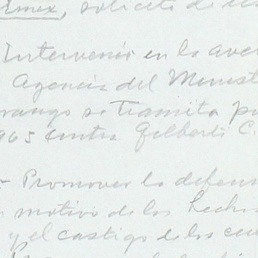 Emex, solicito de
Intervenir en la ave
Agencia del Minist
rango se tramita p
965 contra Gilberto C.
- Promover la defens
motivo de los hechos
y el castigo de los